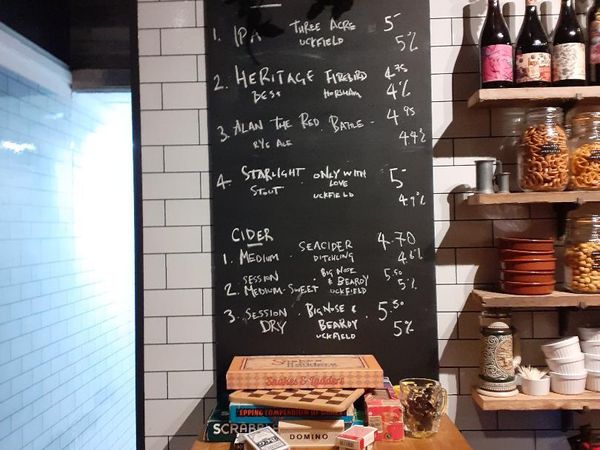 1. IPA THREE ACRE 5-
UCKFIELD 5%
2. HERITAGE FIREBIRD 4.75
BEST HORSHAM 4%
3. ALAN THE RED. BATTLE. 4.95
RYE ALE 4.4%
4. STARLIGHT ONLY WITH 5-
STOUT. LOVE
UCKFIELD 4.9%
CIDER
1. MEDIUM. SEACIDER 4.70
DITCHLING 4.6%
SESSION BIG NOSE 5.50
2. MEDIUM-SWEET & BEARDY 5%
UCKFIELD
3. SESSION BIG NOSE & 5.50
DRY BEARDY 5%
UCKFIELD
Snakes & Ladders
COMPENDIUM OF
SCRABB
DOMINO